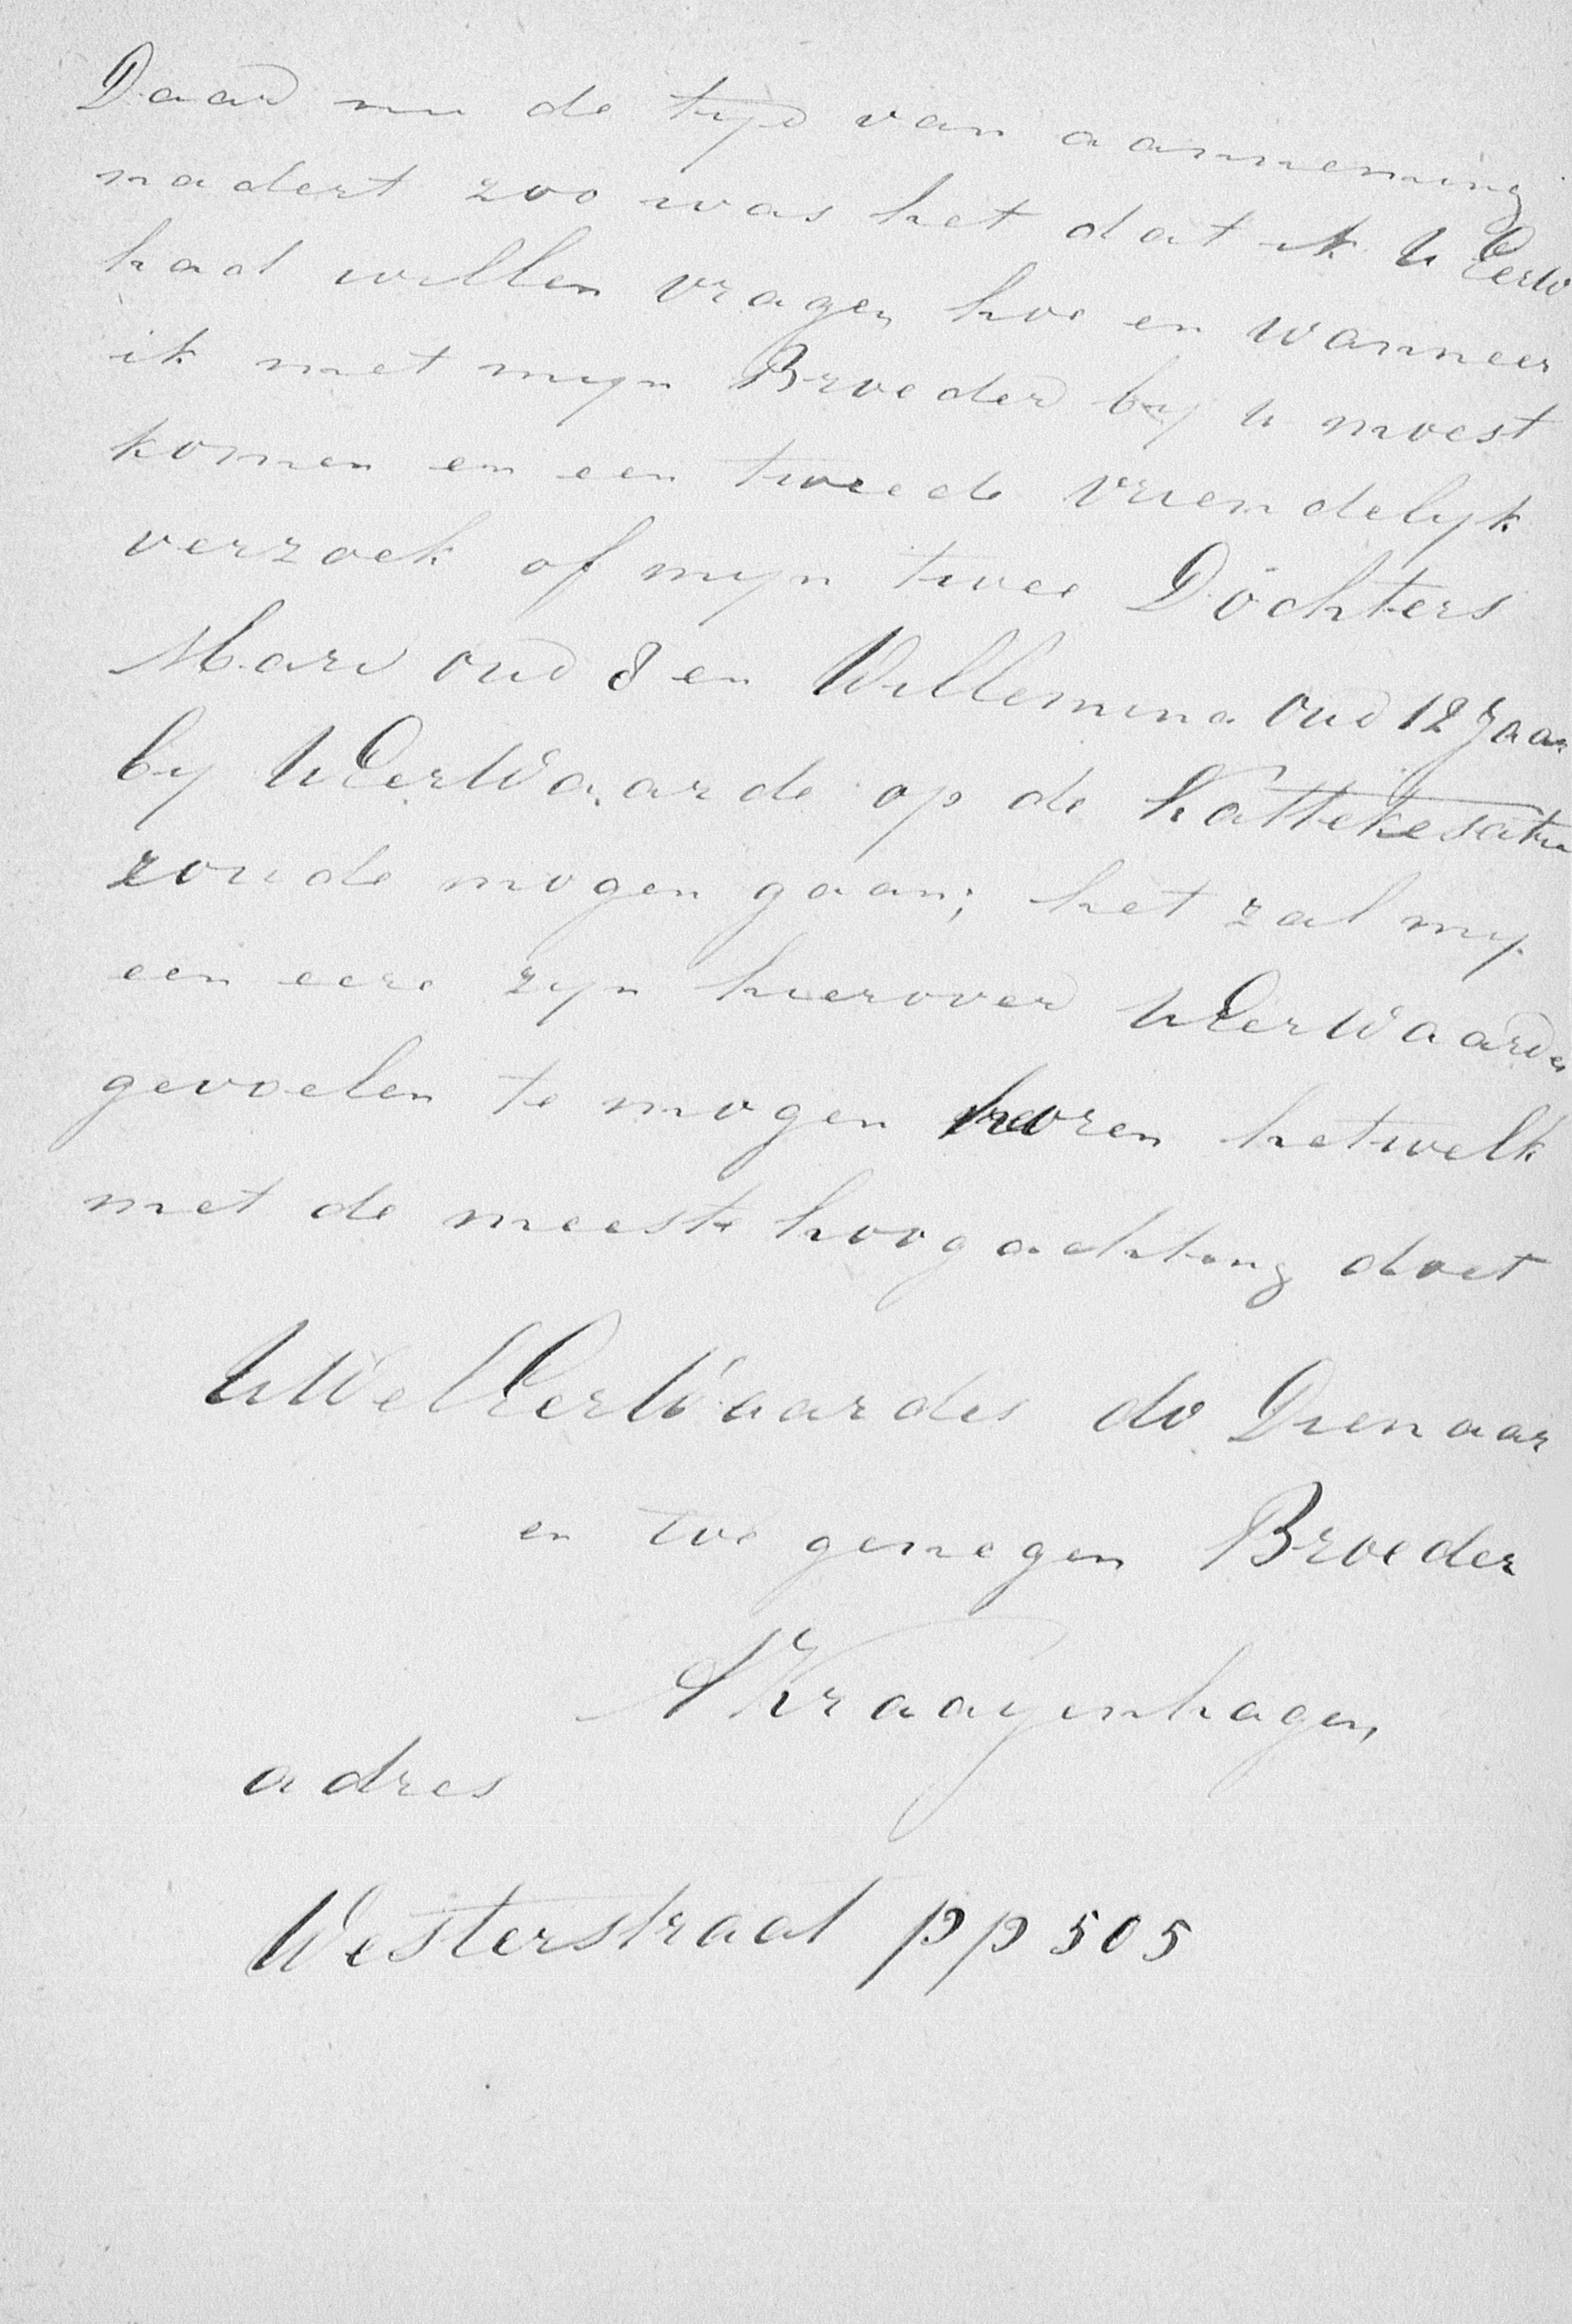 Daar nu de tyd van aanneming
nadert zoo was het dat ik UEerw
had willen vragen hoe en wanneer
ik met myn Broeder by u moest
komen en een tweede vriendelyk
verzoek of myn twee Dochters
Mari oud 8 en Willemina oud 12 Jaar
by UEerWaarde op de Kattekesatie
zoude mogen gaan; het zal my
een eere zyn hierover UEerWaardes
gevoelen te mogen horen hetwelk
met de meeste hoogachting doet
UWelEerWaardes dv Dienaar
en toe genegen Broeder
A Kraayenhagen
adres
Westerstraat pp 505